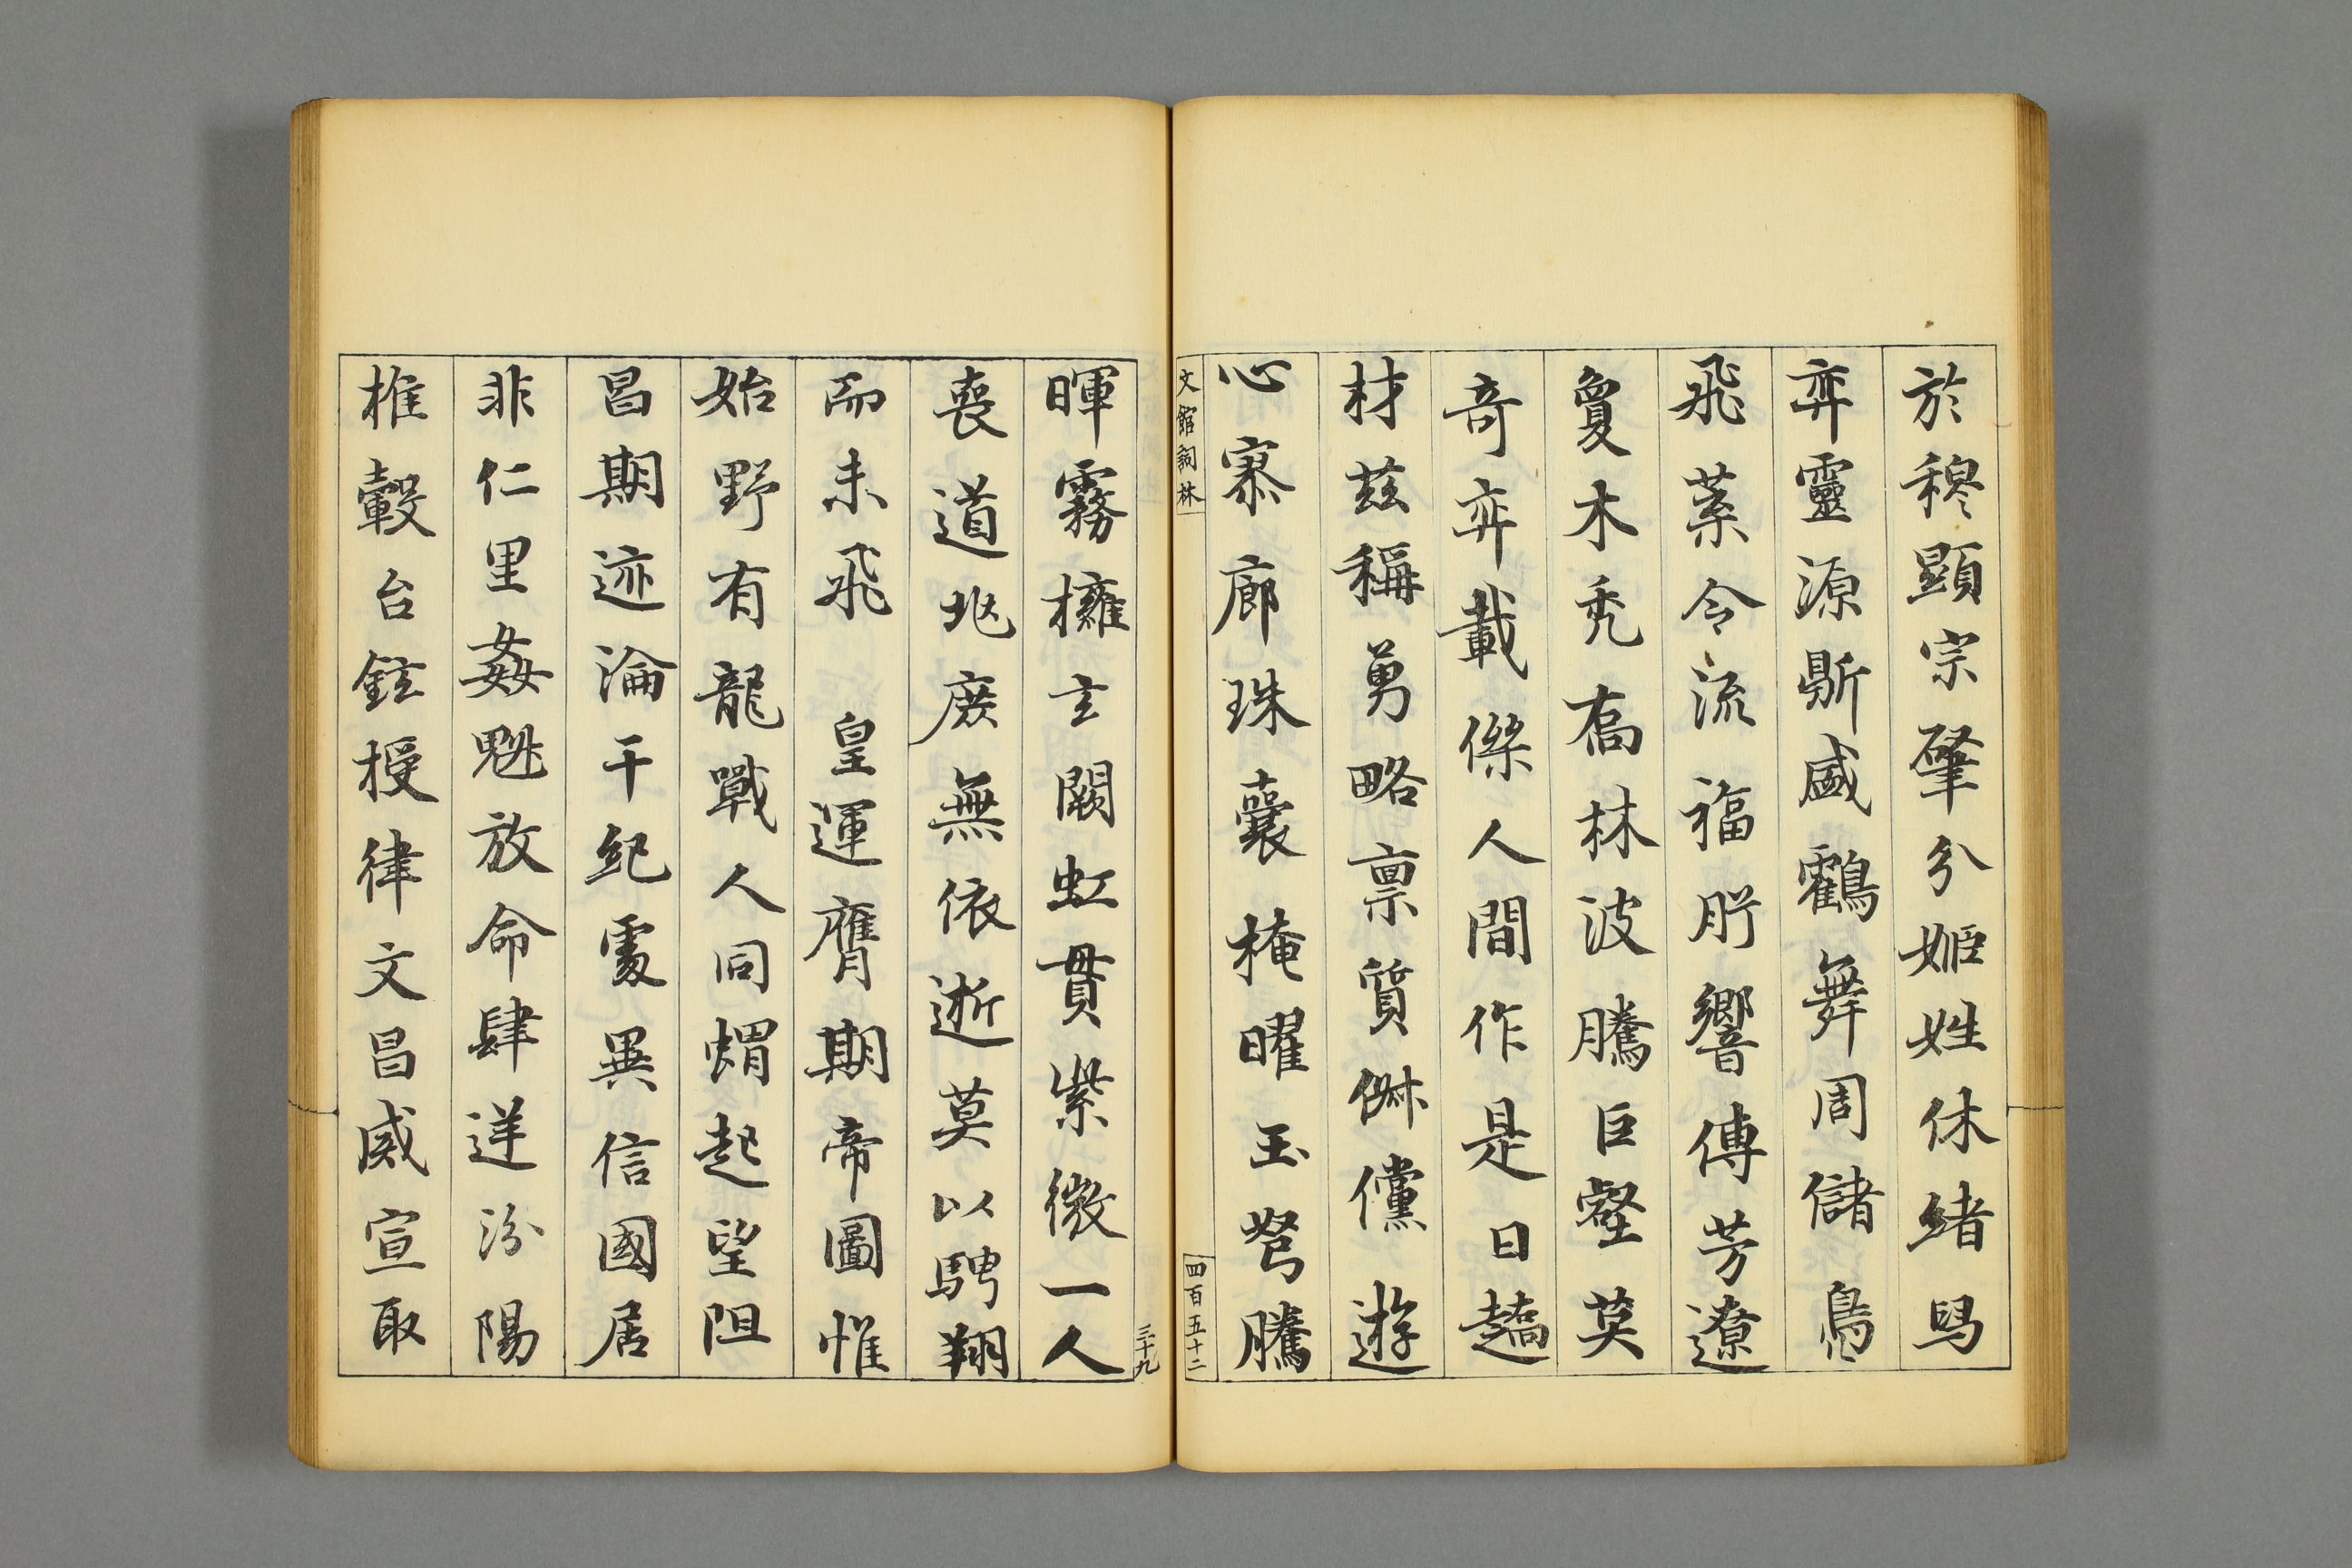 於穆顯宗肇分姬姓休緒舄
弈靈源斯盛鸖舞周儲鳧
飛葉令流福肹響傳芳遼
敻木秀喬林波騰巨壑莫
奇弈載傑人間作是曰趫
材茲稱勇略禀質倜儻遊
心寥廓珠囊掩曜玉弩騰
文館詞林
四百五十二
三十九
暉霧擁玄闕虹貫紫微一人
喪道兆庶無依逝莫以騁翔
而未飛 皇運膺期帝圖惟
始野有龍戰人同蝟起望阻
昌期迹淪千紀處異信國居
非仁里姦魁放命肆逆汾陽
推轂台鉉授律文昌威宣取